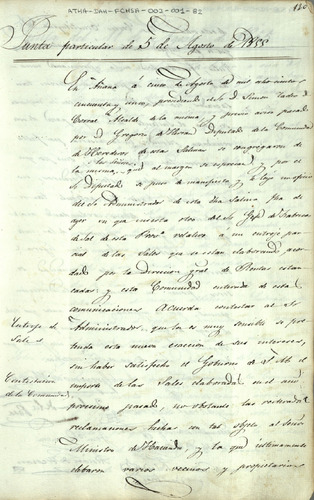 ATHA-DAH-FCHSA-002-001-82
120
Junta particular de 5 de Agosto de 1855
En Añana á cinco de Agosto de mil ochocientos
cincuenta y cinco, presididos del Sr D. Simon Tadeo de
Corral Alcalde de la misma y previo aviso pasado
por D. Gregorio de Diputado de la Comunidad
de Herederos de estas Salinas se congregaron
los Señores
la misma, que al margen se espresan y por el
Sr Diputado se puso de manifiesto y leyó un oficio
del Sr Administrador de estas Salinas fha de
ayer en que inserta otro del Sr Gefe de
de Sal de esta Prova relativo á un entrojo par-
cial de las Sales que se estan elaborando acor-
dado por la direccion gral de Rentas estan-
cadas; y esta Comunidad enterada de esta
comunicaciones Acuerda contestar al Sr
Entrojo de
Administrador, que la es muy sensible se pre-
Sales
tenda esta nueva ecsaccion de sus intereses,
sin haber satisfecho el Gobierno de S. M. el
Contestacion
importe de las Sales elaboradas en el año
de la Comunidad
procsimo pasado, no obstante las reiteradas
reclamaciones hechas con tal objeto al Señor
Ministro de Hacienda y la que ultimamente
elevaron varios vecinos y propietarios